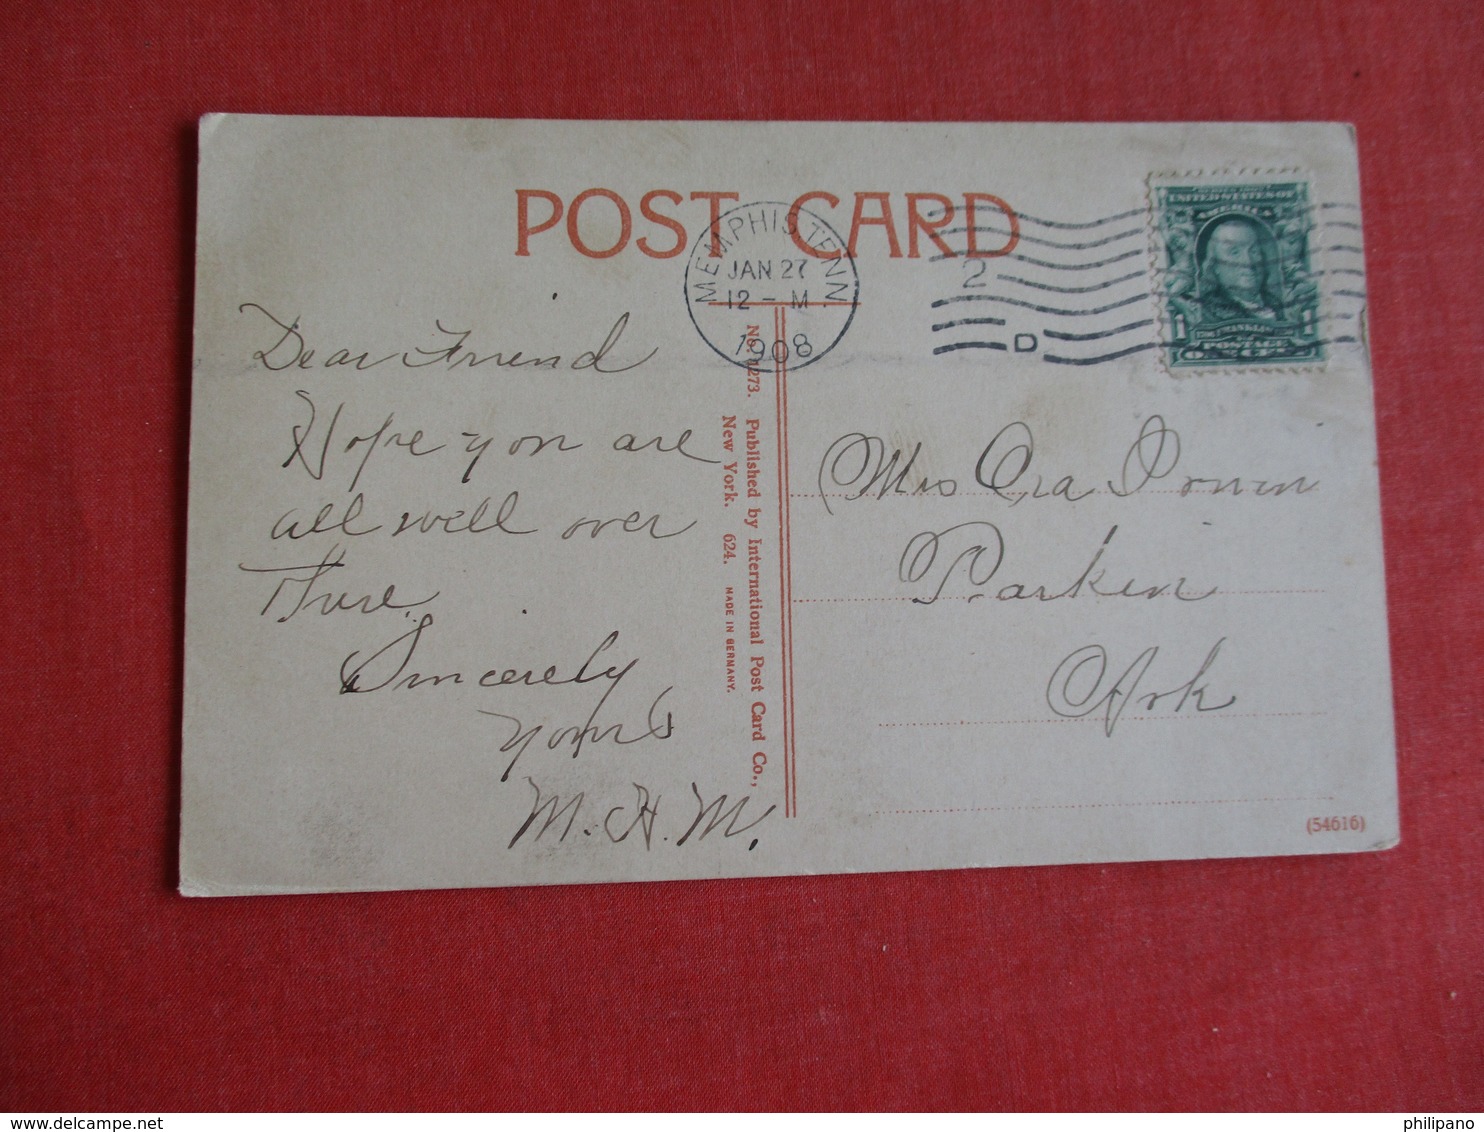 POST CARD
MEMPHIS, TENN
JAN 27
12 - M
1908
2
D
UNITED STATES OF
1 FRANKLIN 1
POSTAGE
ONE CENT
Dear Friend
Hope you are
all well over
There.
Sincerely
Yours
M. H. M.
No. 1273. Published by International Post Card Co.,
New York. 624. MADE IN GERMANY.
Mrs Ora Irwin
Parkin
Ark
(54616)
philipano